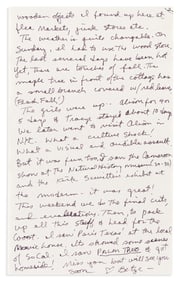 wooden objects I found up here at
flea markets, junk stores etc.
The weather is quite changeable. On
Sunday, I had to use the wood stove.
The last several days have been hot
Yet, there are touches of fall. The
maple tree in front of the cottage has
a small branch covered w/ red leaves
(Flash Fall!)
The girls were up - Alison for
days & Tracye stayed about 10 days
We later went to visit Alison in
NYC. What a culture shock!
What a visual and audible assault.
But it was fun too! Saw the Cameron
show at the Natural History museum
and the Kurt Schwitters exhibit at
the modern. it was great!
This weekend we do the final cuts
and Then, to pack
up all this stuff & head for the
coast. I saw Paris Texas at the local
Movie house. It showed some scenes
of SoCal. I saw PALM TREES & got
homesick! Miss you but will see you
soon ♡ Betye -